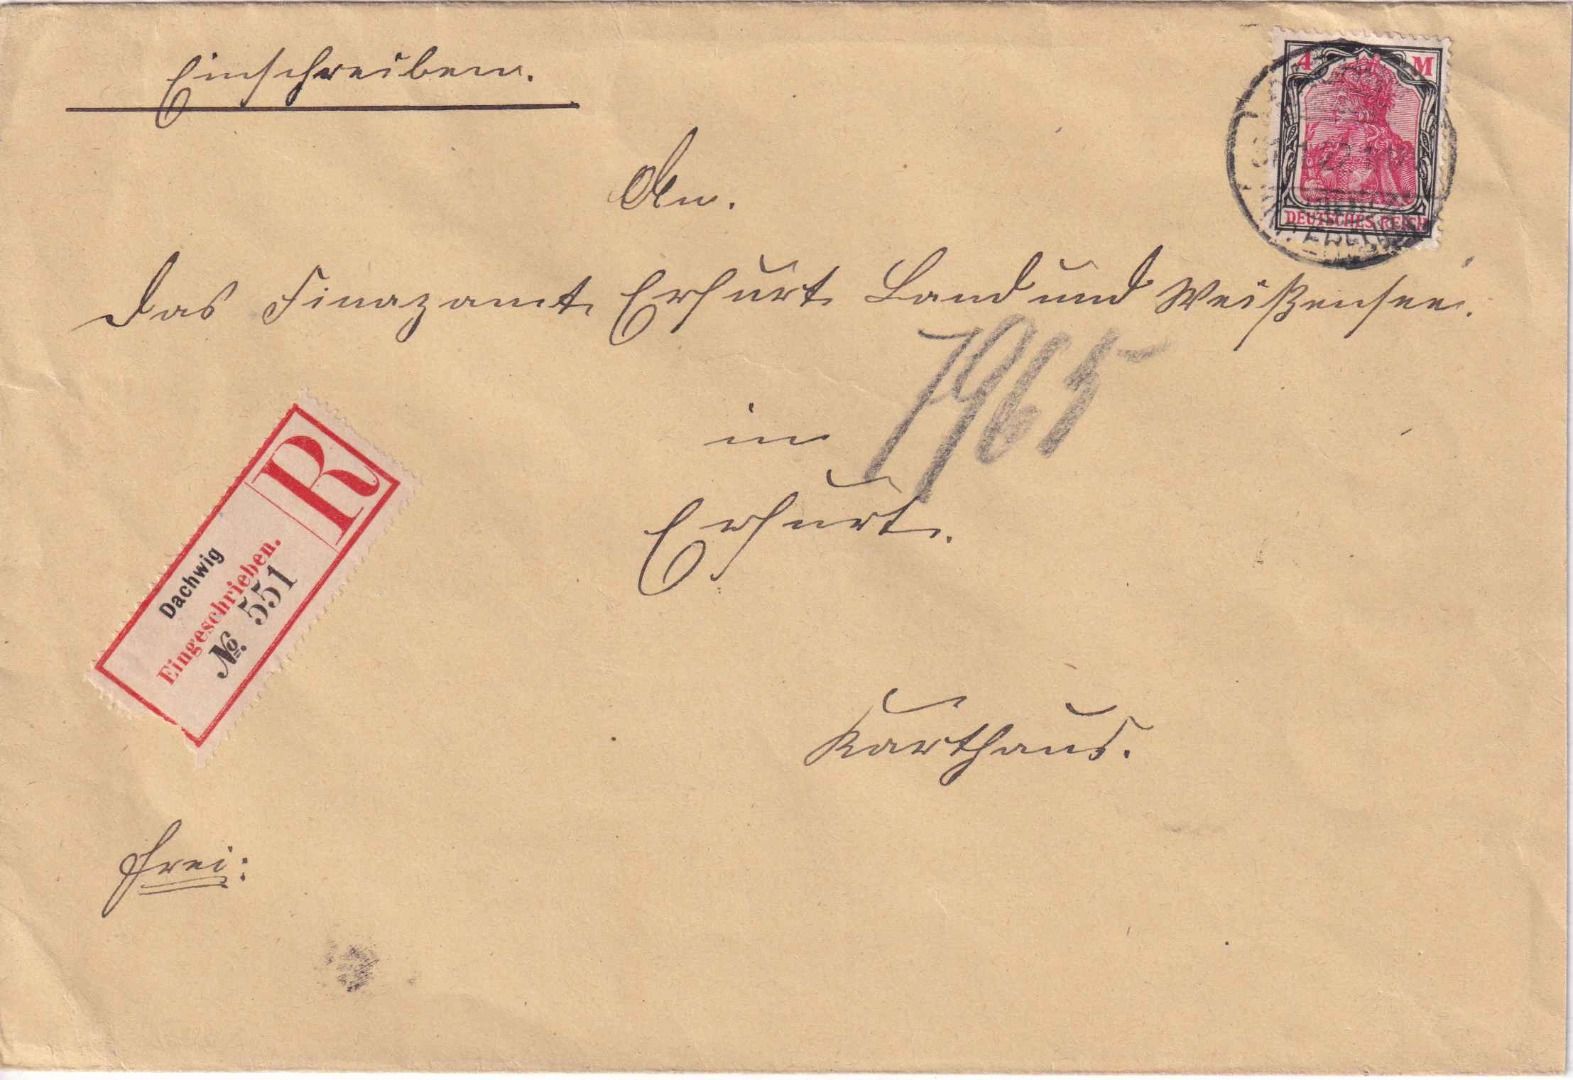 Einschreiben.
4 M
DEUTSCHES REICH
An.
das Finazamt Erfurt Land und Weißensee.
7965
in
Erfurt.
R
Dachwig
Eingeschrieben.
No. 551
Karthaus.
frei: